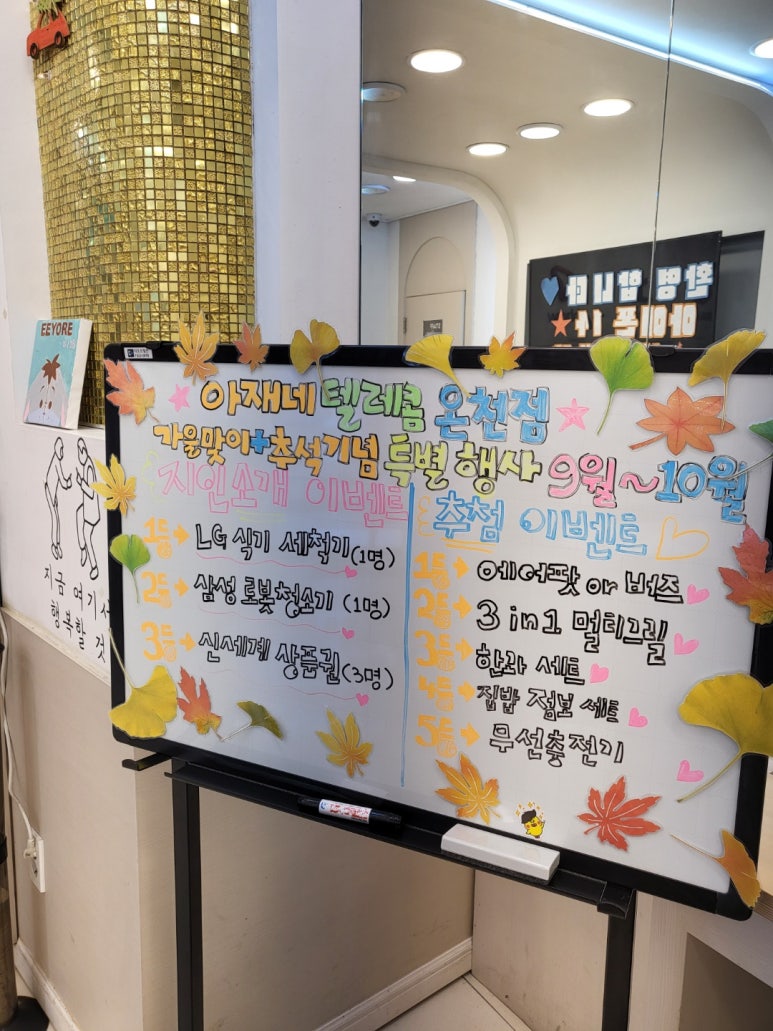 EEYORE
환영 합니다
아이폰 14
아재네 텔레콤 온천점
가을맞이+추석기념 특별 행사 9월~10월
지인소개 이벤트
1등→ LG 식기 세척기(1명)
2등→ 삼성 로봇청소기 (1명)
3등→ 신세계 상품권(3명)
추첨 이벤트
1등→ 에어팟 or 버즈
2등→ 3 in 1 멀티그릴
3등→ 한라 세트
4등→ 집밥 점보 세트
5등→ 무선충전기
지금 여기서
행복할 것